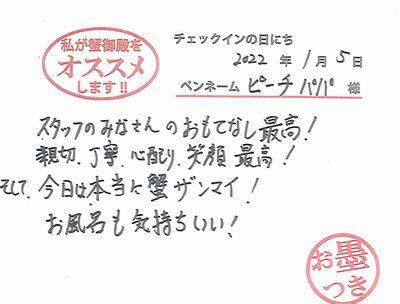 私が蟹御殿を
オススメ
します!!
チェックインの日にち
2022 年 1 月 5 日
ペンネーム ピーチパパ 様
スタッフのみなさんのおもてなし最高!
親切、丁寧、心配り、笑顔 最高!
そして、今日は本当に蟹ザンマイ!
お風呂も気持ちいい!
お墨
つき